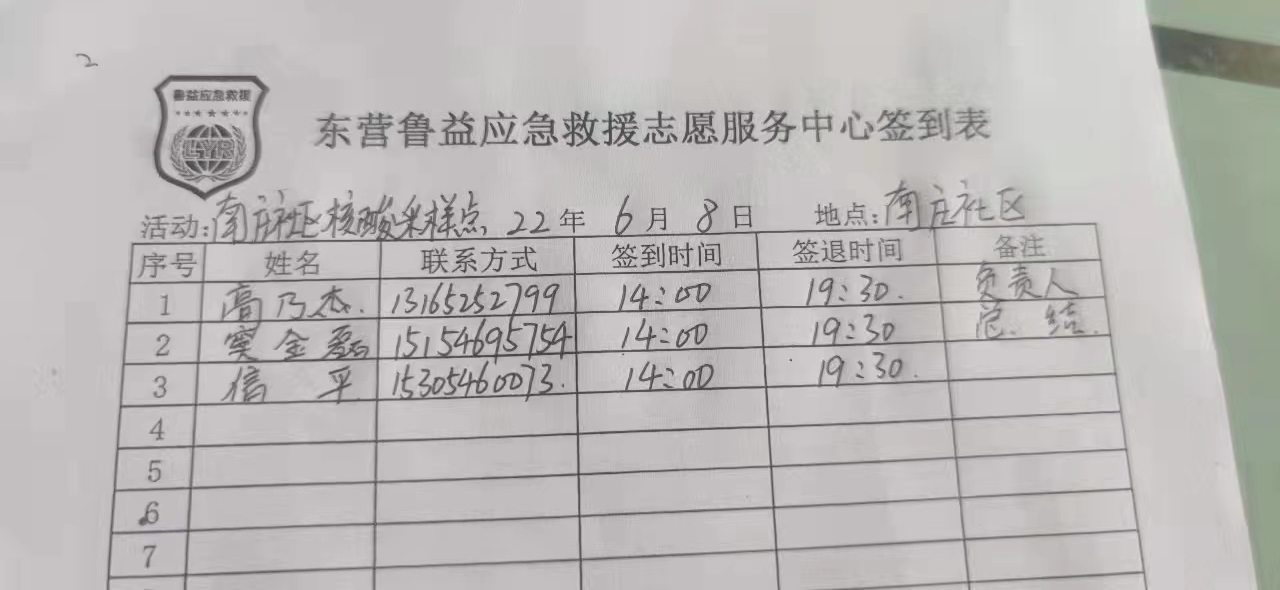 2
鲁益应急救援
LYR
东营鲁益应急救援志愿服务中心签到表
活动:南庄社区核酸采样点 22年 6月 8日 地点:南庄社区
序号 姓名 联系方式 签到时间 签退时间 备注
1 高乃杰. 13165252799 14:00 19:30. 负责人
2 窦金磊 15154695754 14:00 19:30 总.结.
3 信平 15305460073. 14:00 19:30.
4
5
6
7